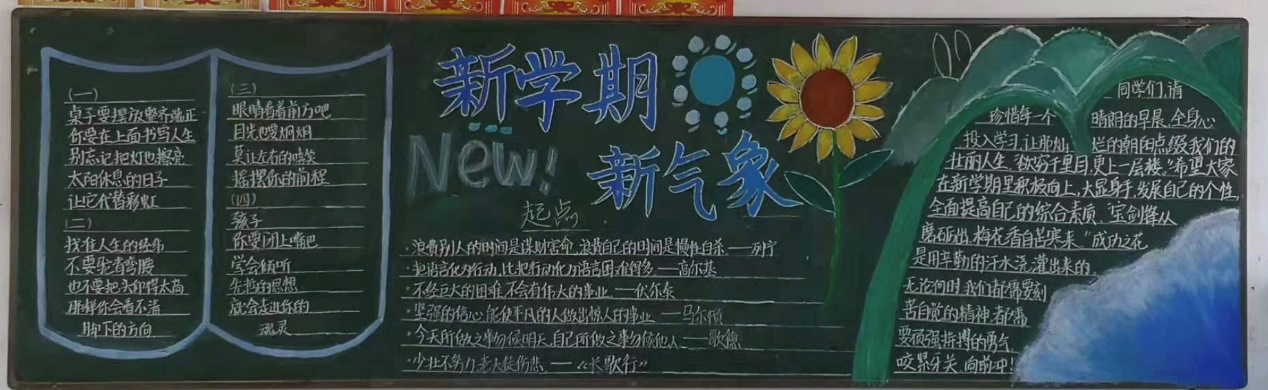 (一)
桌子要摆放整齐端正
你要在上面书写人生
别忘记把灯也擦亮
太阳休息的日子
让它代替彩虹
(二)
找准人生的经纬
不要驼背弯腰
也不要把头仰得太高
那样你会看不清
脚下的方向
(三)
眼睛看着前方吧
目光也要炯炯
莫让左右的嬉笑
摇摆你的前程
(四)
孩子
你要闭上嘴巴
学会倾听
先哲的思想
就会走进你的
灵魂
新学期
New!
新气象
起点
·浪费别人的时间是谋财害命,浪费自己的时间是慢性自杀——列宁
·把语言化为行动,比把行动化为语言困难得多——高尔基
·不经巨大的困难,不会有伟大的事业——伏尔泰
·坚强的信心,能使平凡的人做出惊人的事业——马尔顿
·今天所做之事勿候明天,自己所做之事勿候他人——歌德
·少壮不努力,老大徒伤悲——《长歌行》
同学们,请
珍惜每一个晴阳的早晨,全身心
投入学习,让那灿烂的朝阳点缀我们的
壮丽人生。"欲穷千里目,更上一层楼。"希望大家
在新学期里积极向上,大显身手,发展自己的个性,
全面提高自己的综合素质。"宝剑锋从
磨砺出,梅花香自苦寒来"成功之花
是用辛勤的汗水浇灌出来的。
无论何时,我们都需要刻
苦自觉的精神,都需
要顽强拼搏的勇气
咬紧牙关,向前冲!